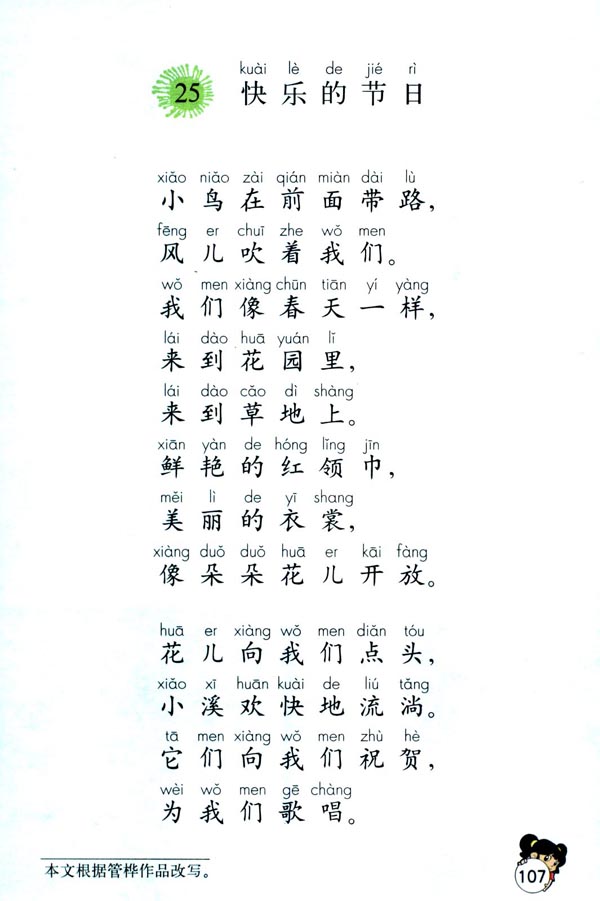 kuài lè de jié rì
25 快乐的节日
xiǎo niǎo zài qián miàn dài lù
小鸟在前面带路，
fēng er chuī zhe wǒ men
风儿吹着我们。
wǒ men xiàng chūn tiān yí yàng
我们像春天一样，
lái dào huā yuán lǐ
来到花园里，
lái dào cǎo dì shàng
来到草地上。
xiān yàn de hóng lǐng jīn
鲜艳的红领巾，
měi lì de yī shang
美丽的衣裳，
xiàng duǒ duǒ huā er kāi fàng
像朵朵花儿开放。
huā er xiàng wǒ men diǎn tóu
花儿向我们点头，
xiǎo xī huān kuài de liú tǎng
小溪欢快地流淌。
tā men xiàng wǒ men zhù hè
它们向我们祝贺，
wèi wǒ men gē chàng
为我们歌唱。
本文根据管桦作品改写。
107